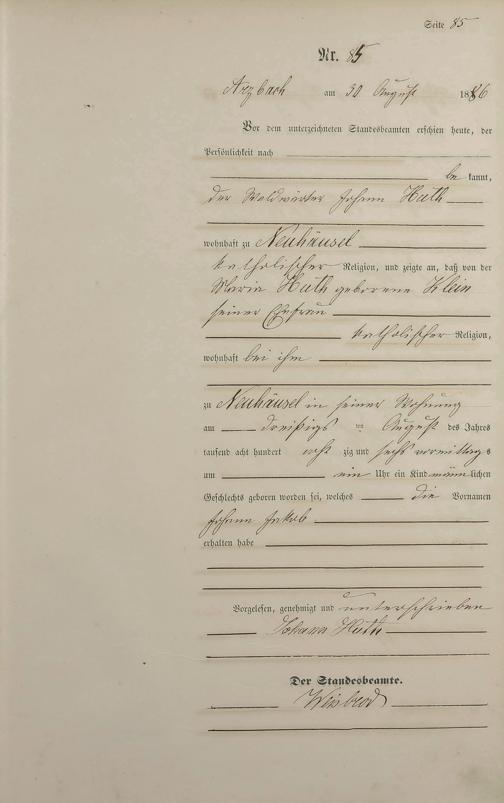 Seite 85
Nr. 85
Arzbach am 30 August 1886
Vor dem unterzeichneten Standesbeamten erschien heute, der
Persönlichkeit nach
be kannt,
der Waldwärter Johann Huth
wohnhaft zu Neuhäusel
katholischer Religion, und zeigte an, daß von der
Maria Huth geborene Klein
seiner Ehefrau
katholischer Religion,
wohnhaft bei ihm
zu Neuhäusel in seiner Wohnung
am dreißigs ten August des Jahres
tausend acht hundert acht zig und sechs vormittag s
um ein Uhr ein Kind männ lichen
Geschlechts geboren worden sei, welches die Vornamen
Johann Jakob
erhalten habe
Vorgelesen, genehmigt und unterschrieben
Johann Huth
Der Standesbeamte.
Weisbrod